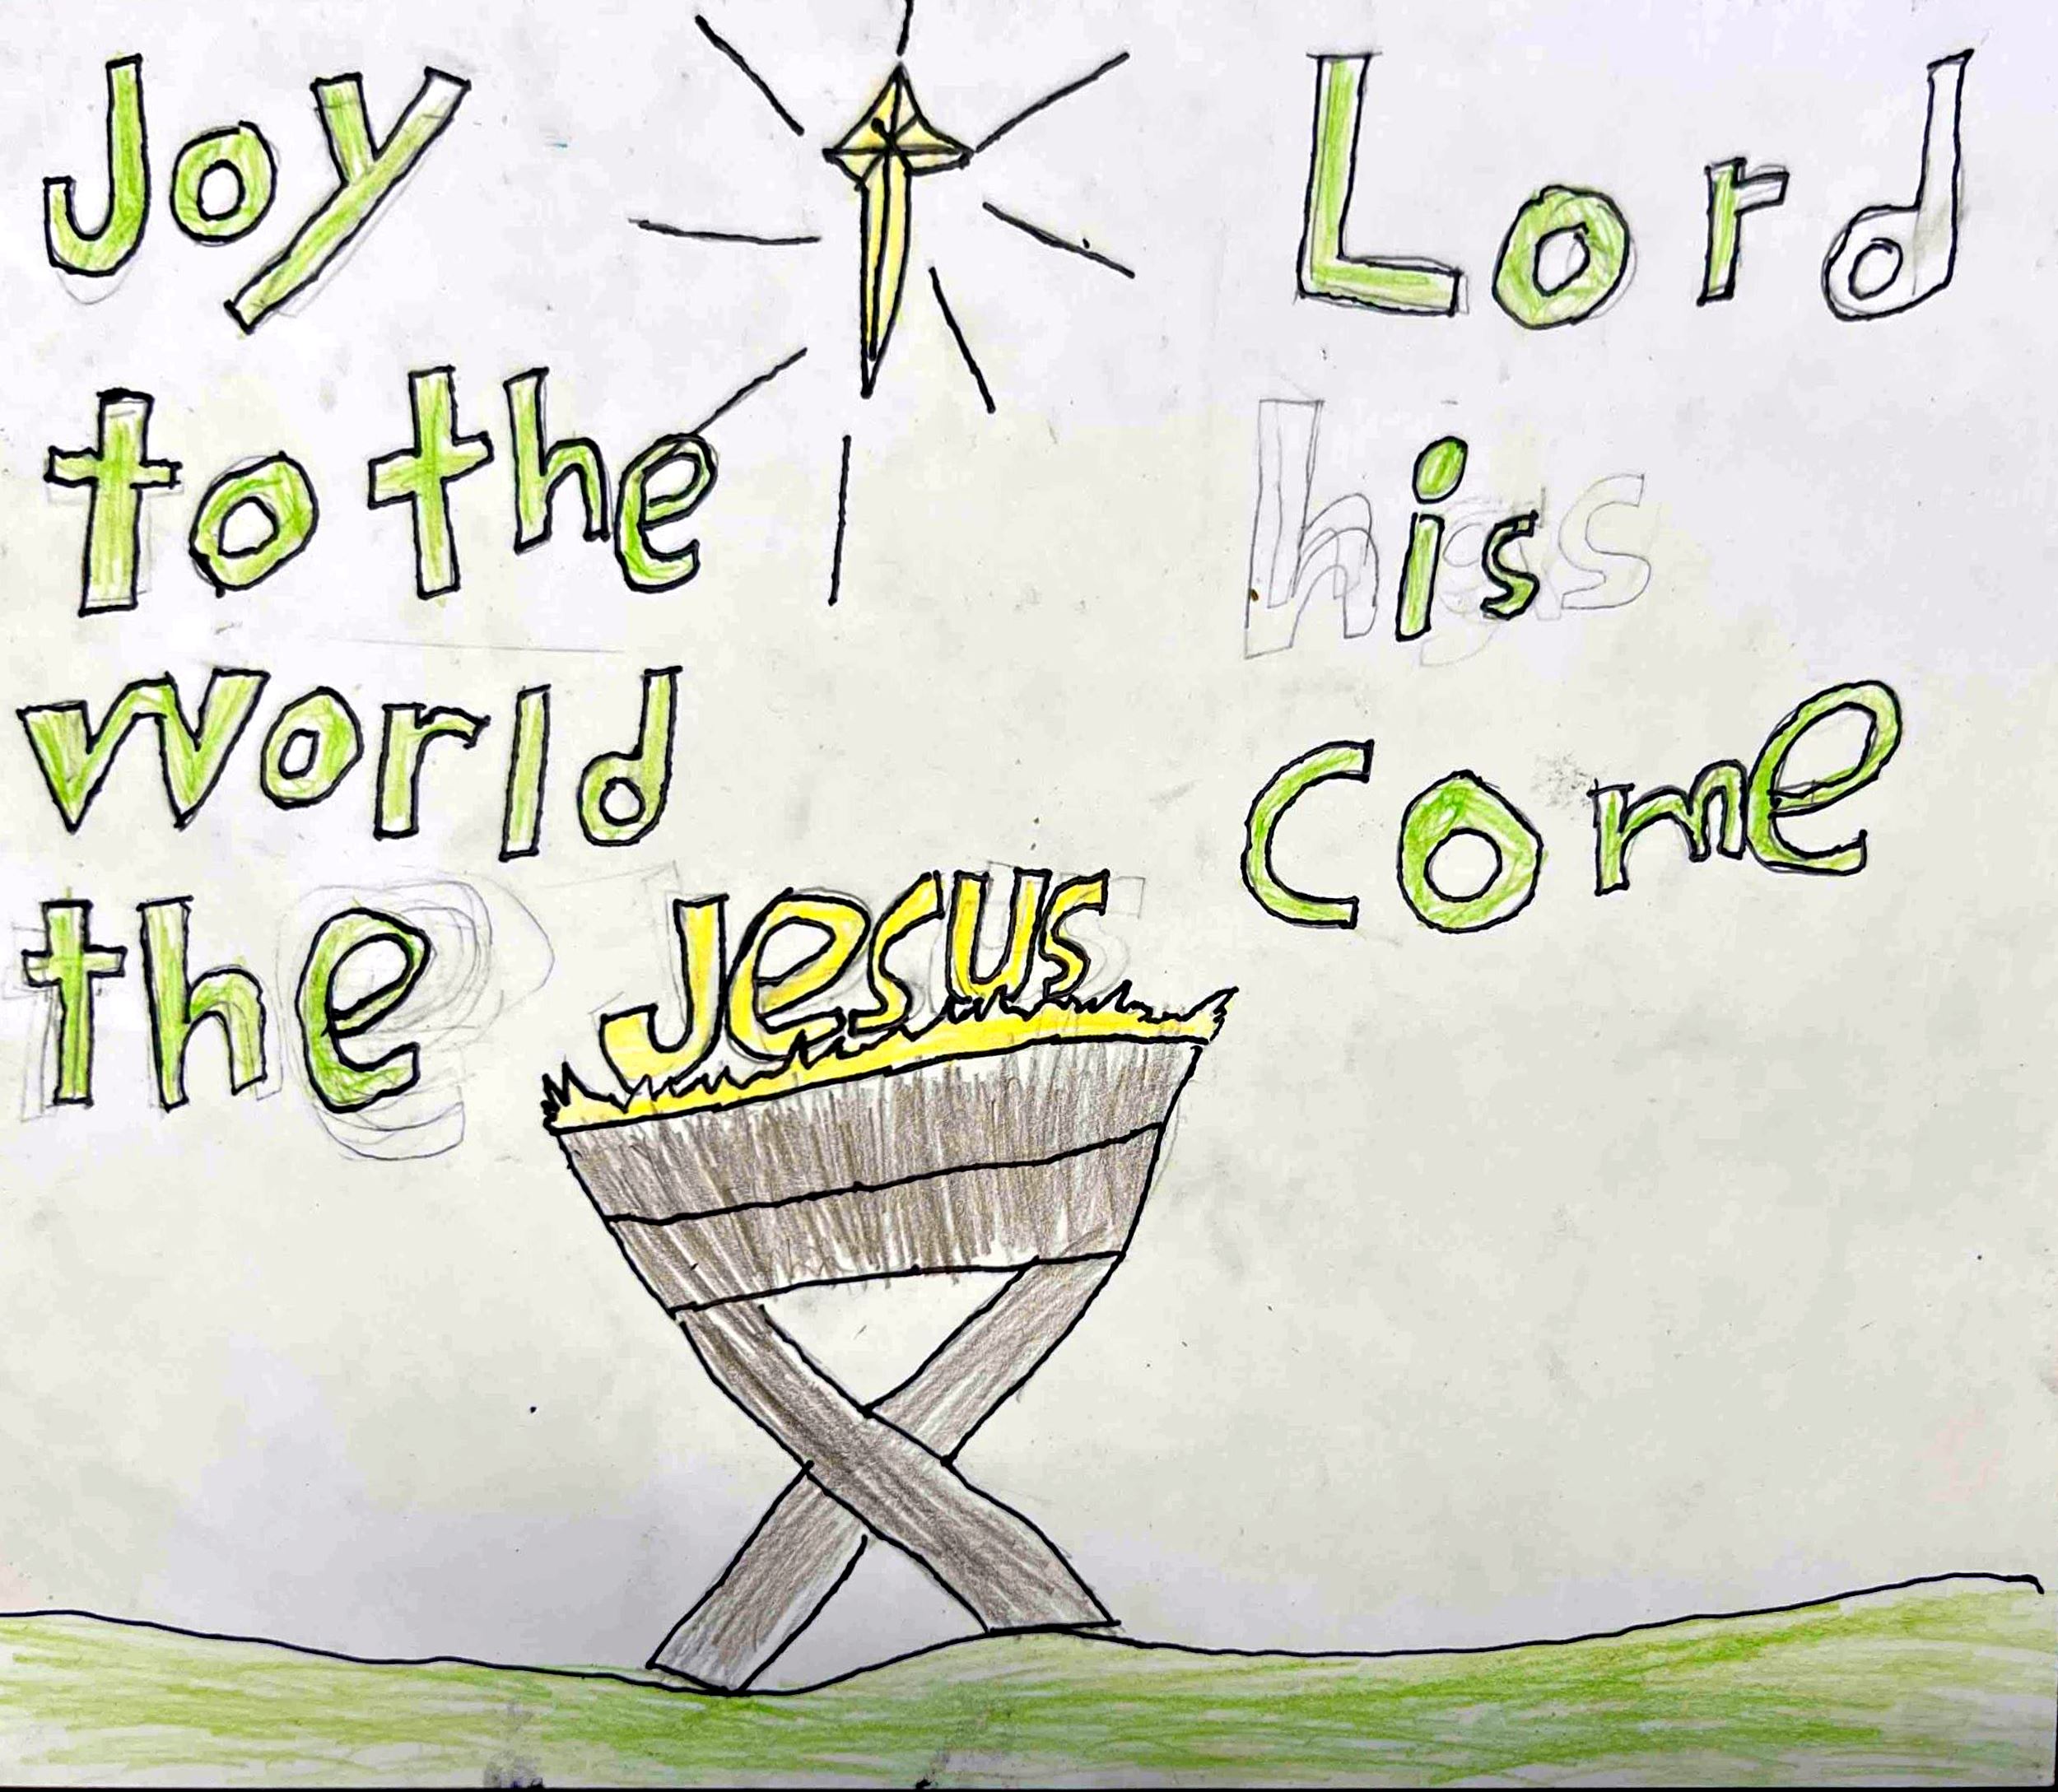 Joy
to the
world
the
Lord
is
come
Jesus